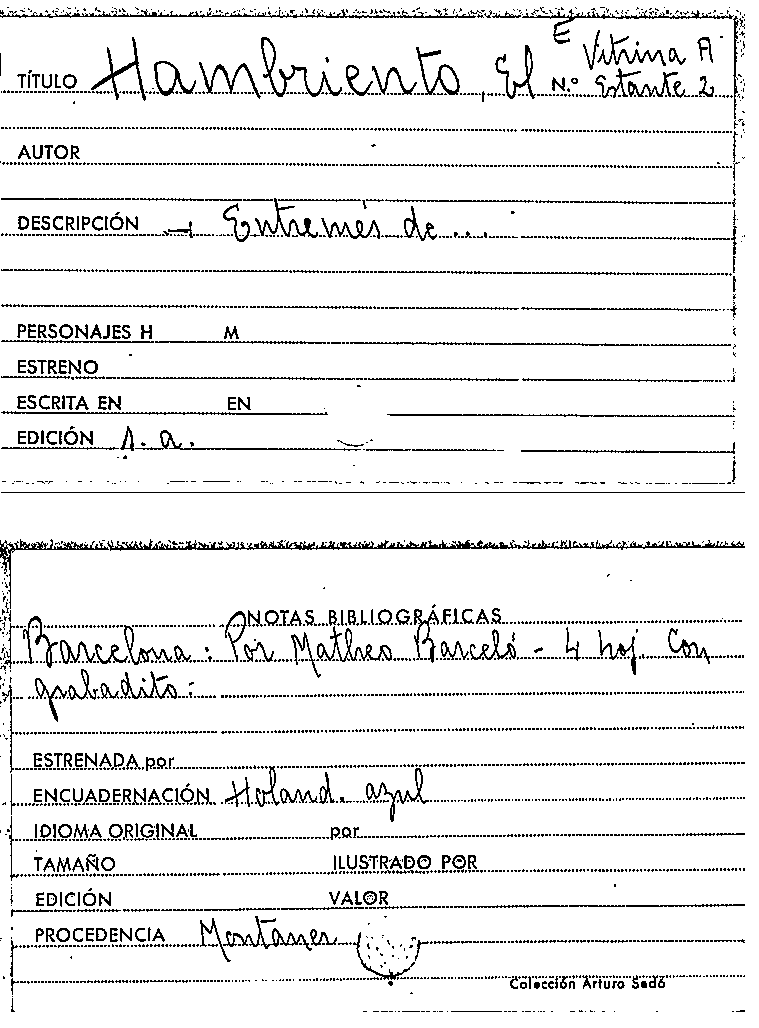 E Vitrina A
TÍTULO Hambriento, El N.º Estante 2
AUTOR
DESCRIPCIÓN → Entremés de...
PERSONAJES H M
ESTRENO
ESCRITA EN EN
EDICIÓN s. a.
NOTAS BIBLIOGRÁFICAS
Barcelona: Por Matheo Barceló - 4 hoj. Con
grabadito:
ESTRENADA por
ENCUADERNACIÓN Holand. azul
IDIOMA ORIGINAL por
TAMAÑO ILUSTRADO POR
EDICIÓN VALOR
PROCEDENCIA Montaner
Colección Arturo Sedó